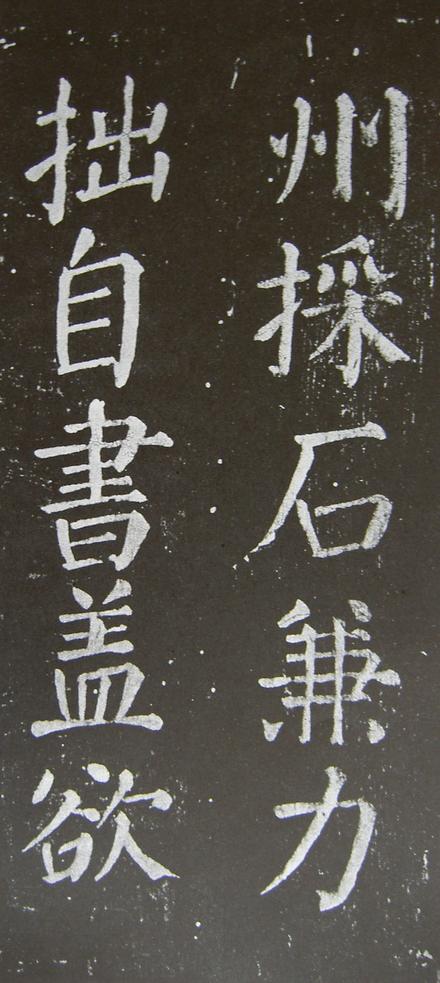 州採石兼力
拙自書盖欲